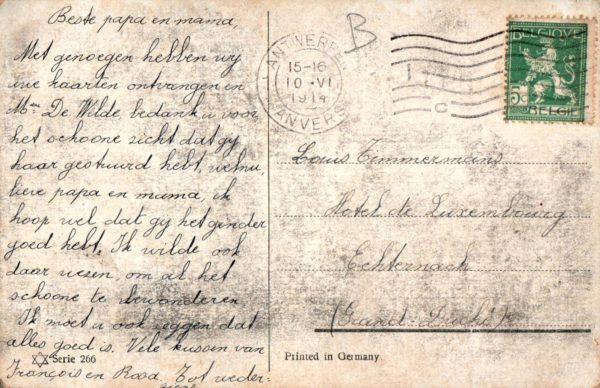 Beste papa en mama,
Met genoegen hebben wy
uwe kaarten ontvangen en
Mme De Wilde, bedankt u voor
het schoone zicht dat gy
haar gestuurd hebt. welnu,
lieve papa en mama, ik
hoop wel dat gy het ginder
goed hebt. Ik wilde ook
daar wesen, om al het
schoone te bewonderen.
Ik moet u ook zeggen dat
alles goed is. Vele kussen van
François en Rosa. Tot weder-
ziens
Serie 266
B
ANTWERPEN
15-16
10 VI
1914
ANVERS
BELGIQUE
5c
BELGIË
Louis Timmermans
Hotel de Luxembourg
Echternach
(Grand-Duché)
Printed in Germany.